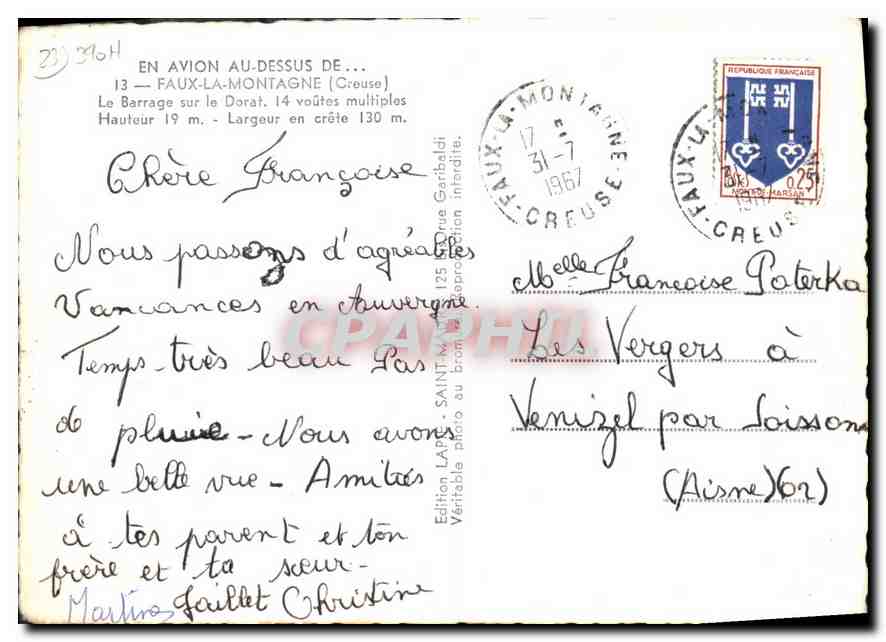 23) 390H
EN AVION AU-DESSUS DE...
13 — FAUX-LA-MONTAGNE (Creuse)
Le Barrage sur le Dorat. 14 voûtes multiples
Hauteur 19 m. - Largeur en crête 130 m.
Chère Françoise
Nous passons d'agréables
Vancances en Auvergne.
Temps très beau Pas
de pluie - Nous avons
une belle vue - Amitiés
à tes parent et ton
frère et ta sœur -
Martine Jaillet Christine
Edition LAPIE - SAINT-MAUR 125 rue Garibaldi
Véritable photo au bromure Reproduction interdite.
CPAPHIL
FAUX-LA-MONTAGNE
17
31-7
1967
CREUSE
REPUBLIQUE FRANÇAISE
0,25
MONT-DE-MARSAN
FAUX-LA-
31-7
1967
CREUSE
Melle Francoise Paterka
Les Vergers à
Venizel par Soissons
(Aisne)(02)